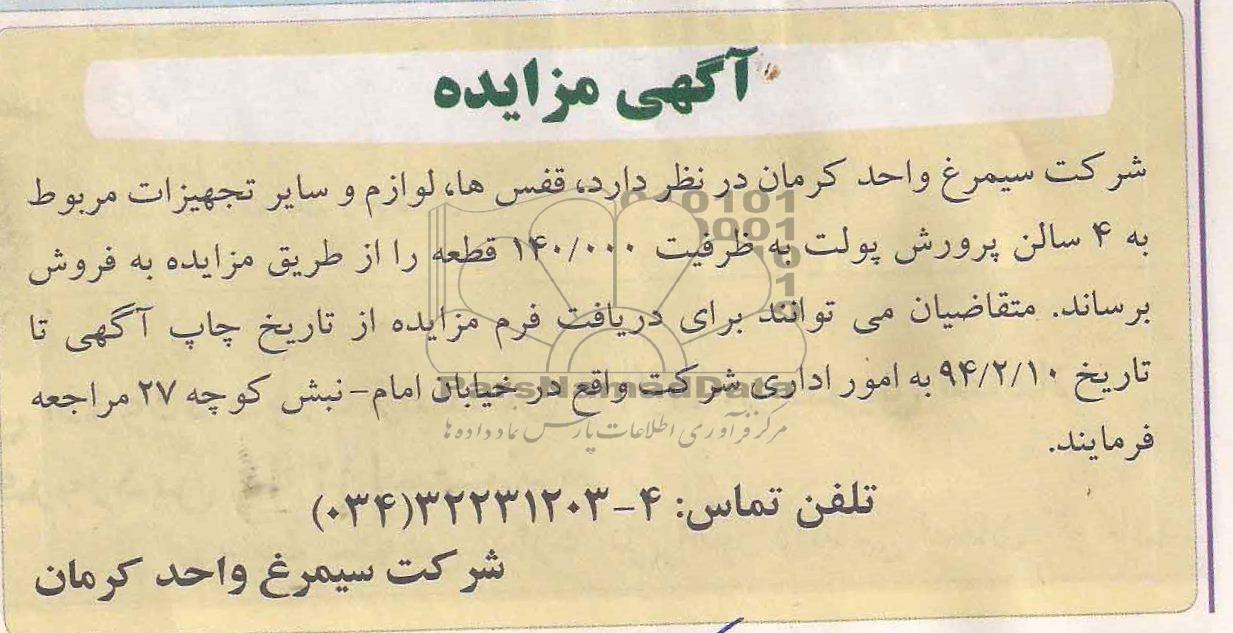 آگهی مزایده
شرکت سیمرغ واحد کرمان در نظر دارد، قفس ها، لوازم و سایر تجهیزات مربوط
به ۴ سالن پرورش پولت به ظرفیت ۱۴۰/۰۰۰ قطعه را از طریق مزایده به فروش
برساند. متقاضیان می توانند برای دریافت فرم مزایده از تاریخ چاپ آگهی تا
تاریخ ۹۴/۲/۱۰ به امور اداری شرکت واقع در خیابان امام- نبش کوچه ۲۷ مراجعه
فرمایند.
تلفن تماس: ۴-۳۲۲۳۱۲۰۳(۰۳۴)
شرکت سیمرغ واحد کرمان
ParsNamadData
مرکز فرآوری اطلاعات پارس نماد داده ها